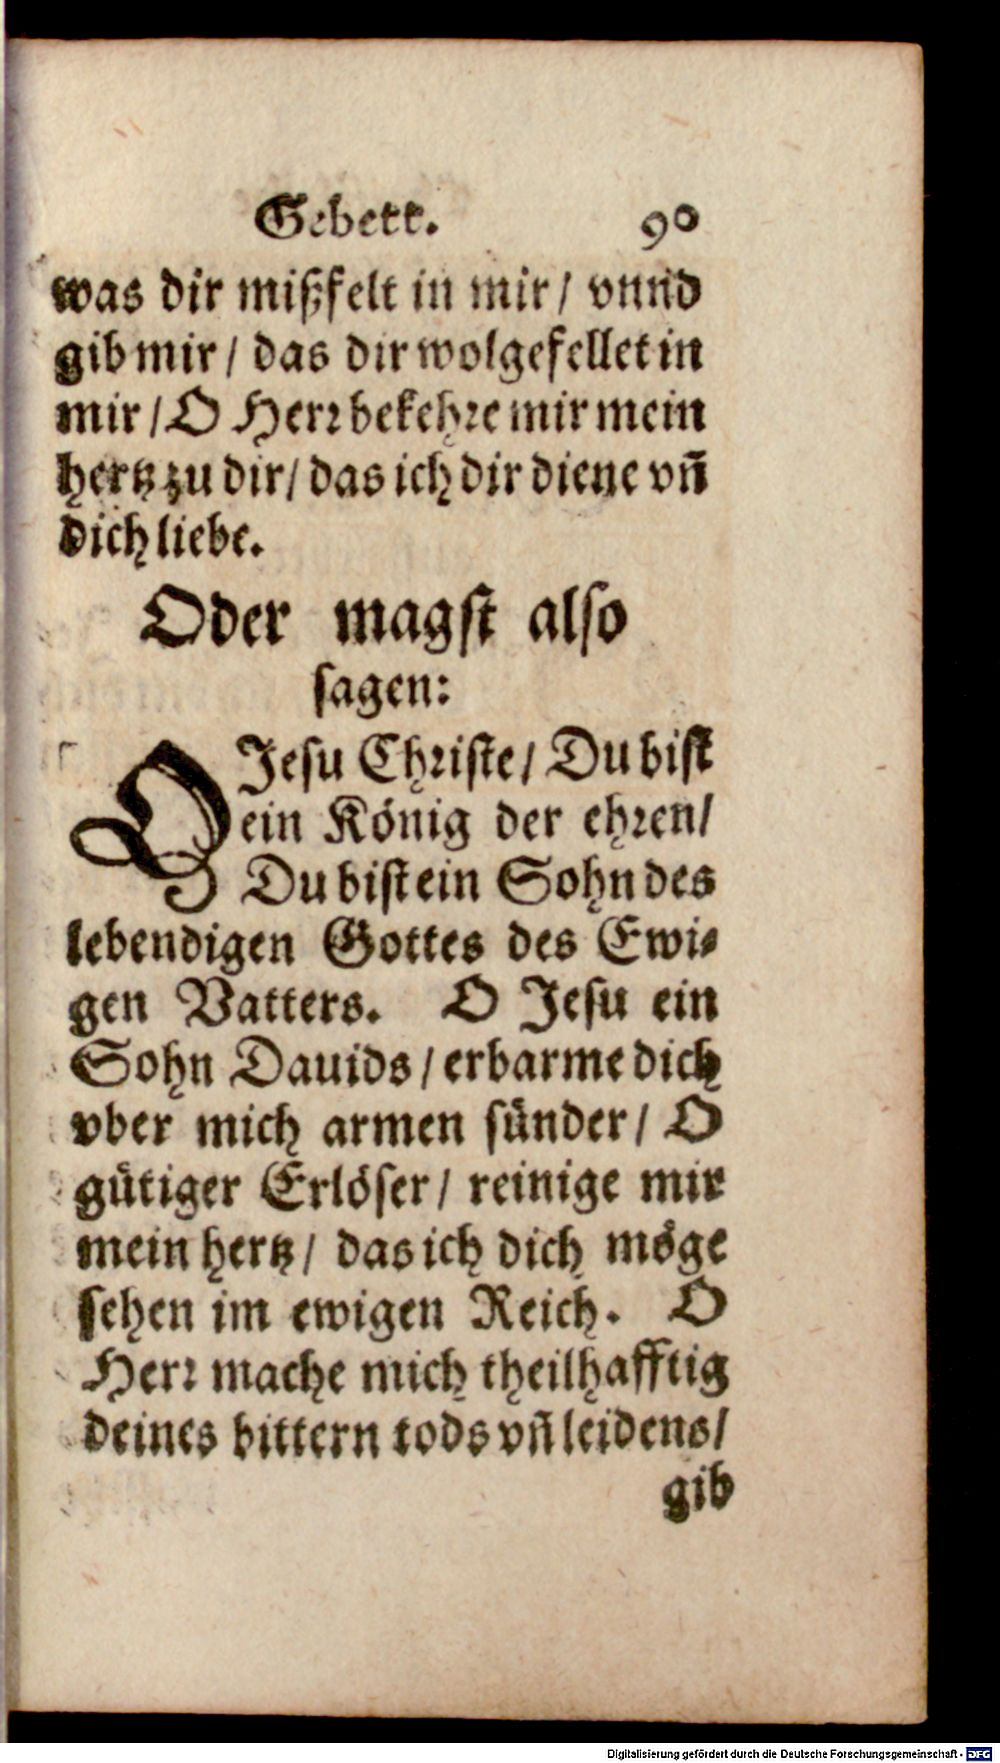 Gebett. 90
was dir mißfelt in mir / vnnd
gib mir / das dir wolgefellet in
mir / O Herr bekehre mir mein
hertz zu dir / das ich dir diene vñ
dich liebe.
Oder magst also
sagen:
O Jesu Christe / Du bist
ein König der ehren /
Du bist ein Sohn des
lebendigen Gottes des Ewi-
gen Vatters. O Jesu ein
Sohn Dauids / erbarme dich
vber mich armen sünder / O
gütiger Erlöser / reinige mir
mein hertz / das ich dich möge
sehen im ewigen Reich. O
Herr mache mich theilhafftig
deines bittern tods vñ leidens /
gib
Digitalisierung gefördert durch die Deutsche Forschungsgemeinschaft - DFG